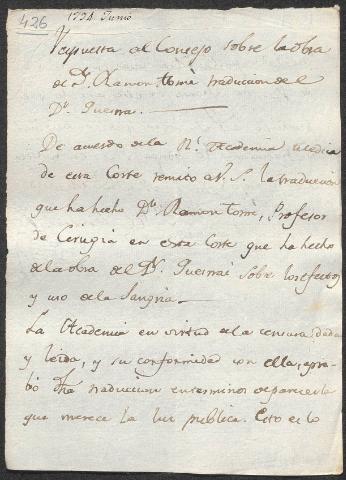 426
1734 Junio
Respuesta al Consejo sobre la obra
de Dn. Ramon tomè traducion de el
Dr. Quesnai.
De acuerdo de la Rl. Academia Medica
de esta Corte remito a V. S. la traducion
que ha hecho Dn. Ramon Tomè, Profesor
de Cirugia en esta Corte que ha hecho
de la obra del Dr. Quesnai sobre los efectos
y uso de la Sangria
La Academia en virtud de la censura dada
y leida, y su conformidad con ella, apro-
bò dha traducion en terminos de parecerla
que merece la luz publica. Esto es lo